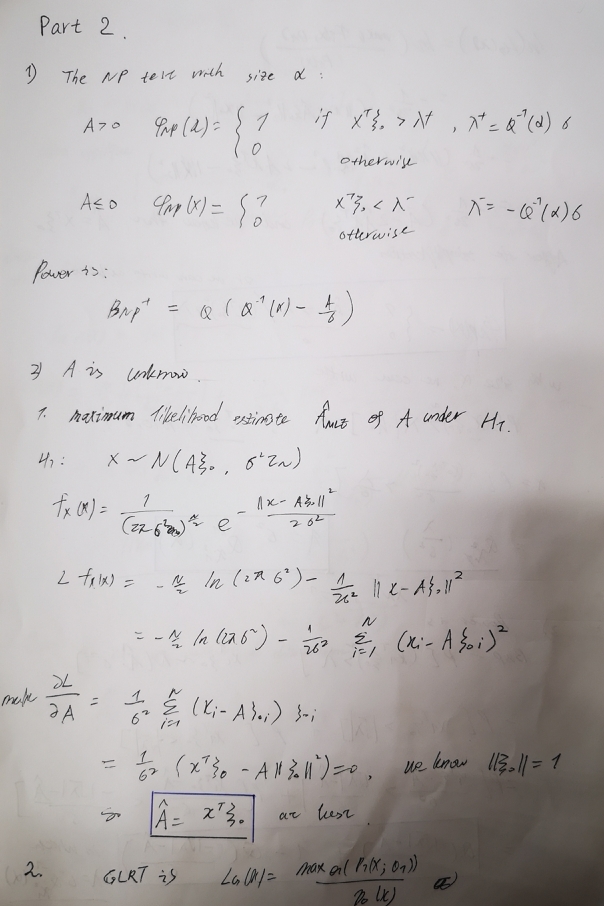 Part 2.
1) The NP test with size α :
A>0 φ_NP(x) = { 1 if xᵀξ₀ > λ⁺ , λ⁺ = Q⁻¹(α) σ
0 otherwise
A≤0 φ_NP(x) = { 1 xᵀξ₀ < λ⁻ λ⁻ = -Q⁻¹(α) σ
0 otherwise
Power is:
B_NP⁺ = Q ( Q⁻¹(α) - A/σ )
2) A is unknow.
1. maximum likelihood estimate Â_MLE of A under H₁.
H₁: X ~ N(Aξ₀, σ²I_N)
f_X(x) = 1/(2πσ²)^(N/2) e^(-||x - Aξ₀||²/2σ²)
L f_X(x) = -N/2 ln(2πσ²) - 1/2σ² ||x - Aξ₀||²
= -N/2 ln(2πσ²) - 1/2σ² Σ_{i=1}^N (x_i - Aξ₀i)²
make ∂L/∂A = 1/σ² Σ_{i=1}^N (x_i - Aξ₀i) ξ₀i
= 1/σ² (xᵀξ₀ - A||ξ₀||²) = 0, we know ||ξ₀|| = 1
so Â = xᵀξ₀
2. GLRT is L_G(x) = max θ₁(P₁(x; θ₁))/P₀(x)